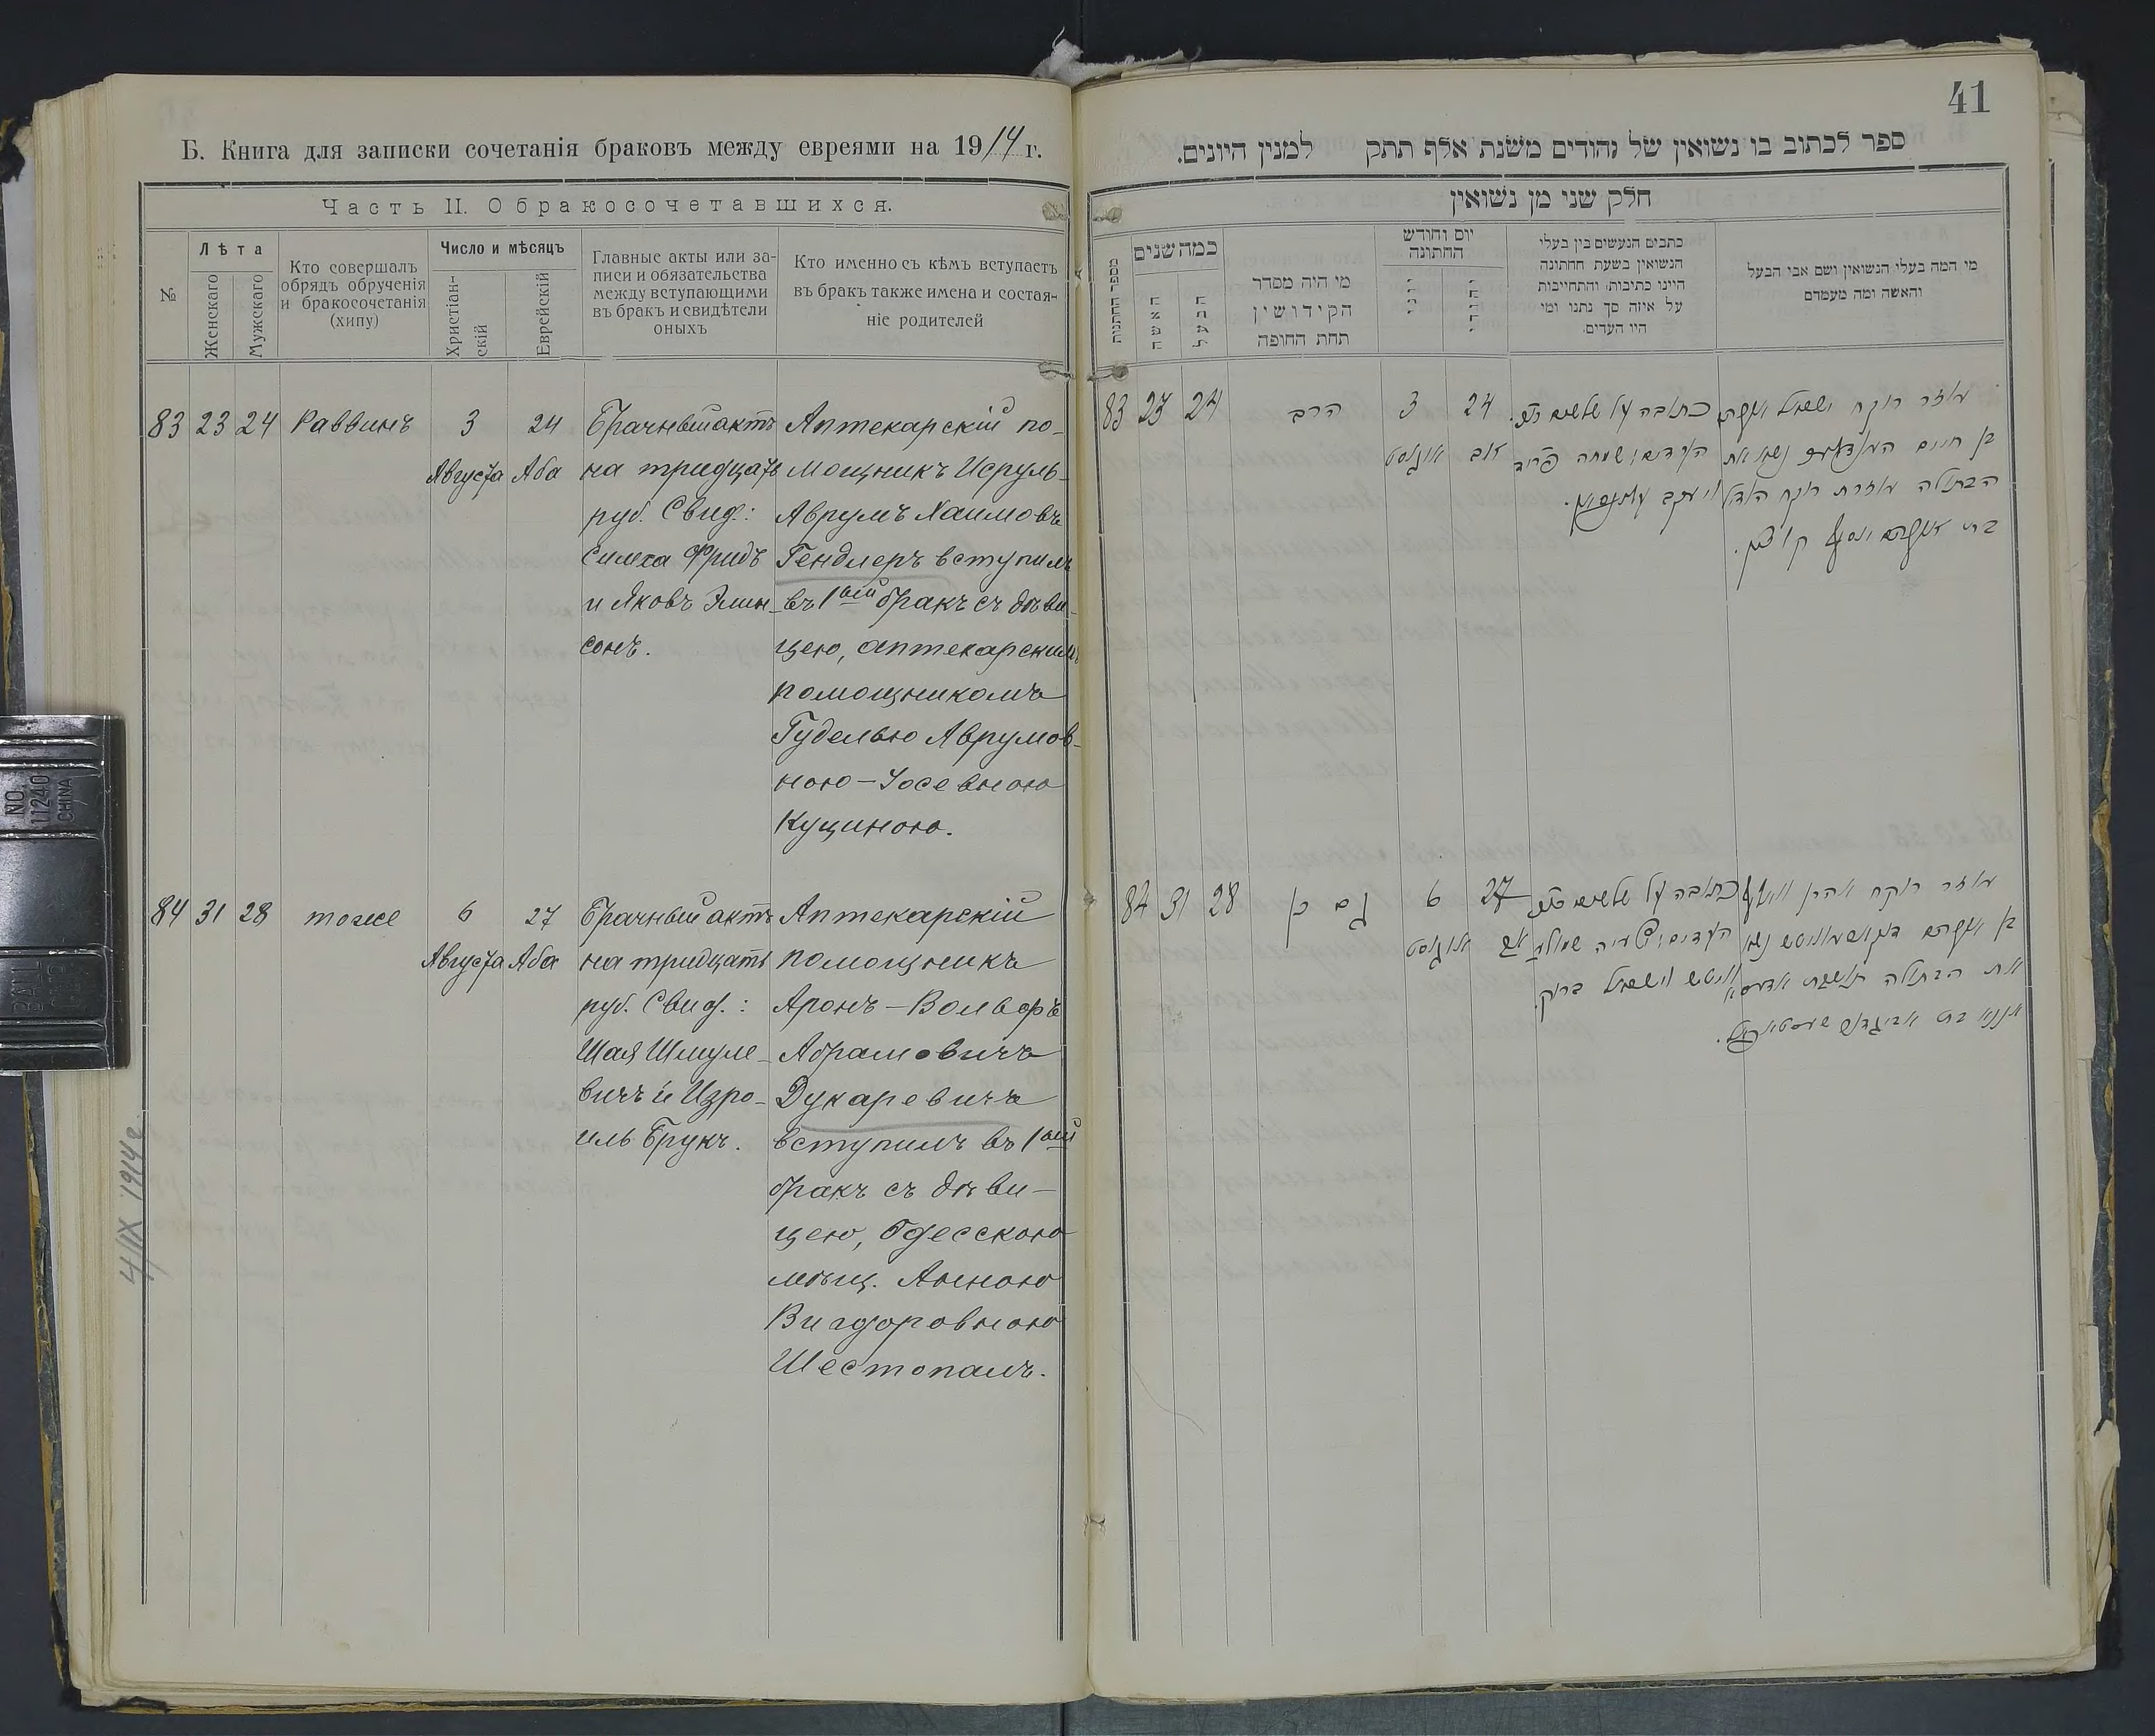 41
Б. Книга для записки сочетанія браковъ между евреями на 1914 г.
Часть II. О бракосочетавшихся.
№
Лѣта
Женскаго
Мужскаго
Кто совершалъ
обрядъ обрученія
и бракосочетанія
(хипу)
Число и мѣсяцъ
Христіан-
скій
Еврейскій
Главные акты или за-
писи и обязательства
между вступающими
въ бракъ и свидѣтели
оныхъ
Кто именно съ кѣмъ вступаетъ
въ бракъ также имена и состоя-
ніе родителей
83 23 24 Раввинъ
3
Августа
24
Аба
Брачный актъ
на тридцать
руб. Свид.:
Симха Фридъ
и Яковъ Элин-
сонъ.
Аптекарскій по-
мощникъ Исруль-
Аврумъ Хаимовъ
Гендлеръ вступилъ
въ 1ый бракъ съ дѣви-
цею, аптекарскимъ
помощникомъ
Гуделью Аврумов-
ною-Іосевною
Куциною.
84 31 28 тоже
6
Августа
27
Аба
Брачный актъ
на тридцать
руб. Свид.:
Шая Шмуле-
вичъ и Изро-
иль Брукъ.
Аптекарскій
помощникъ
Аронъ-Вольфъ
Абрамовичъ
Дукаревичъ
вступилъ въ 1ый
бракъ съ дѣви-
цею, Одесскою
мѣщ. Анною
Вигдоровною
Шестопалъ.
4/IX 1914 г.
ספר לכתוב בו נשואין של יהודים משנת אלף תתק למנין היונים.
חלק שני מן נשואין
מספר החתנות
כמה שנים
האשה
הבעל
מי היה מסדר
הקידושין
תחת החופה
יום וחודש
החתונה
יוני
יהודי
כתבים הנעשים בין בעלי
הנשואין בשעת החתונה
היינו כתיבות והתחייבות
על איזה סך נתנו ומי
היו העדים.
מי המה בעלי הנשואין ושם אבי הבעל
והאשה ומה מעמדם
83 23 24 הרב
3
אוגוסט
24
אב
כתובה על שלשים
העדים: שמחה פריד
ויעקב
עוזר רוקח ישראל
בן חיים נשא את
הבתולה עוזרת רוקח הודל
בת יוסף קוצין.
84 31 28 גם כן
6
אוגוסט
27
אב
כתובה על שלשים
העדים: ישעיה שמולע
וויטש וישראל ברוק.
עוזר רוקח אהרן וואלף
בן נשא
את הבתולה
אננא בת אביגדור שעסטאפאל.
NO.
11240
CHINA
BALL